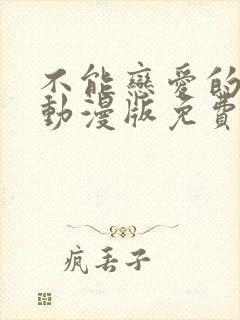 不能戀愛的
動漫版免費
瘋丟子